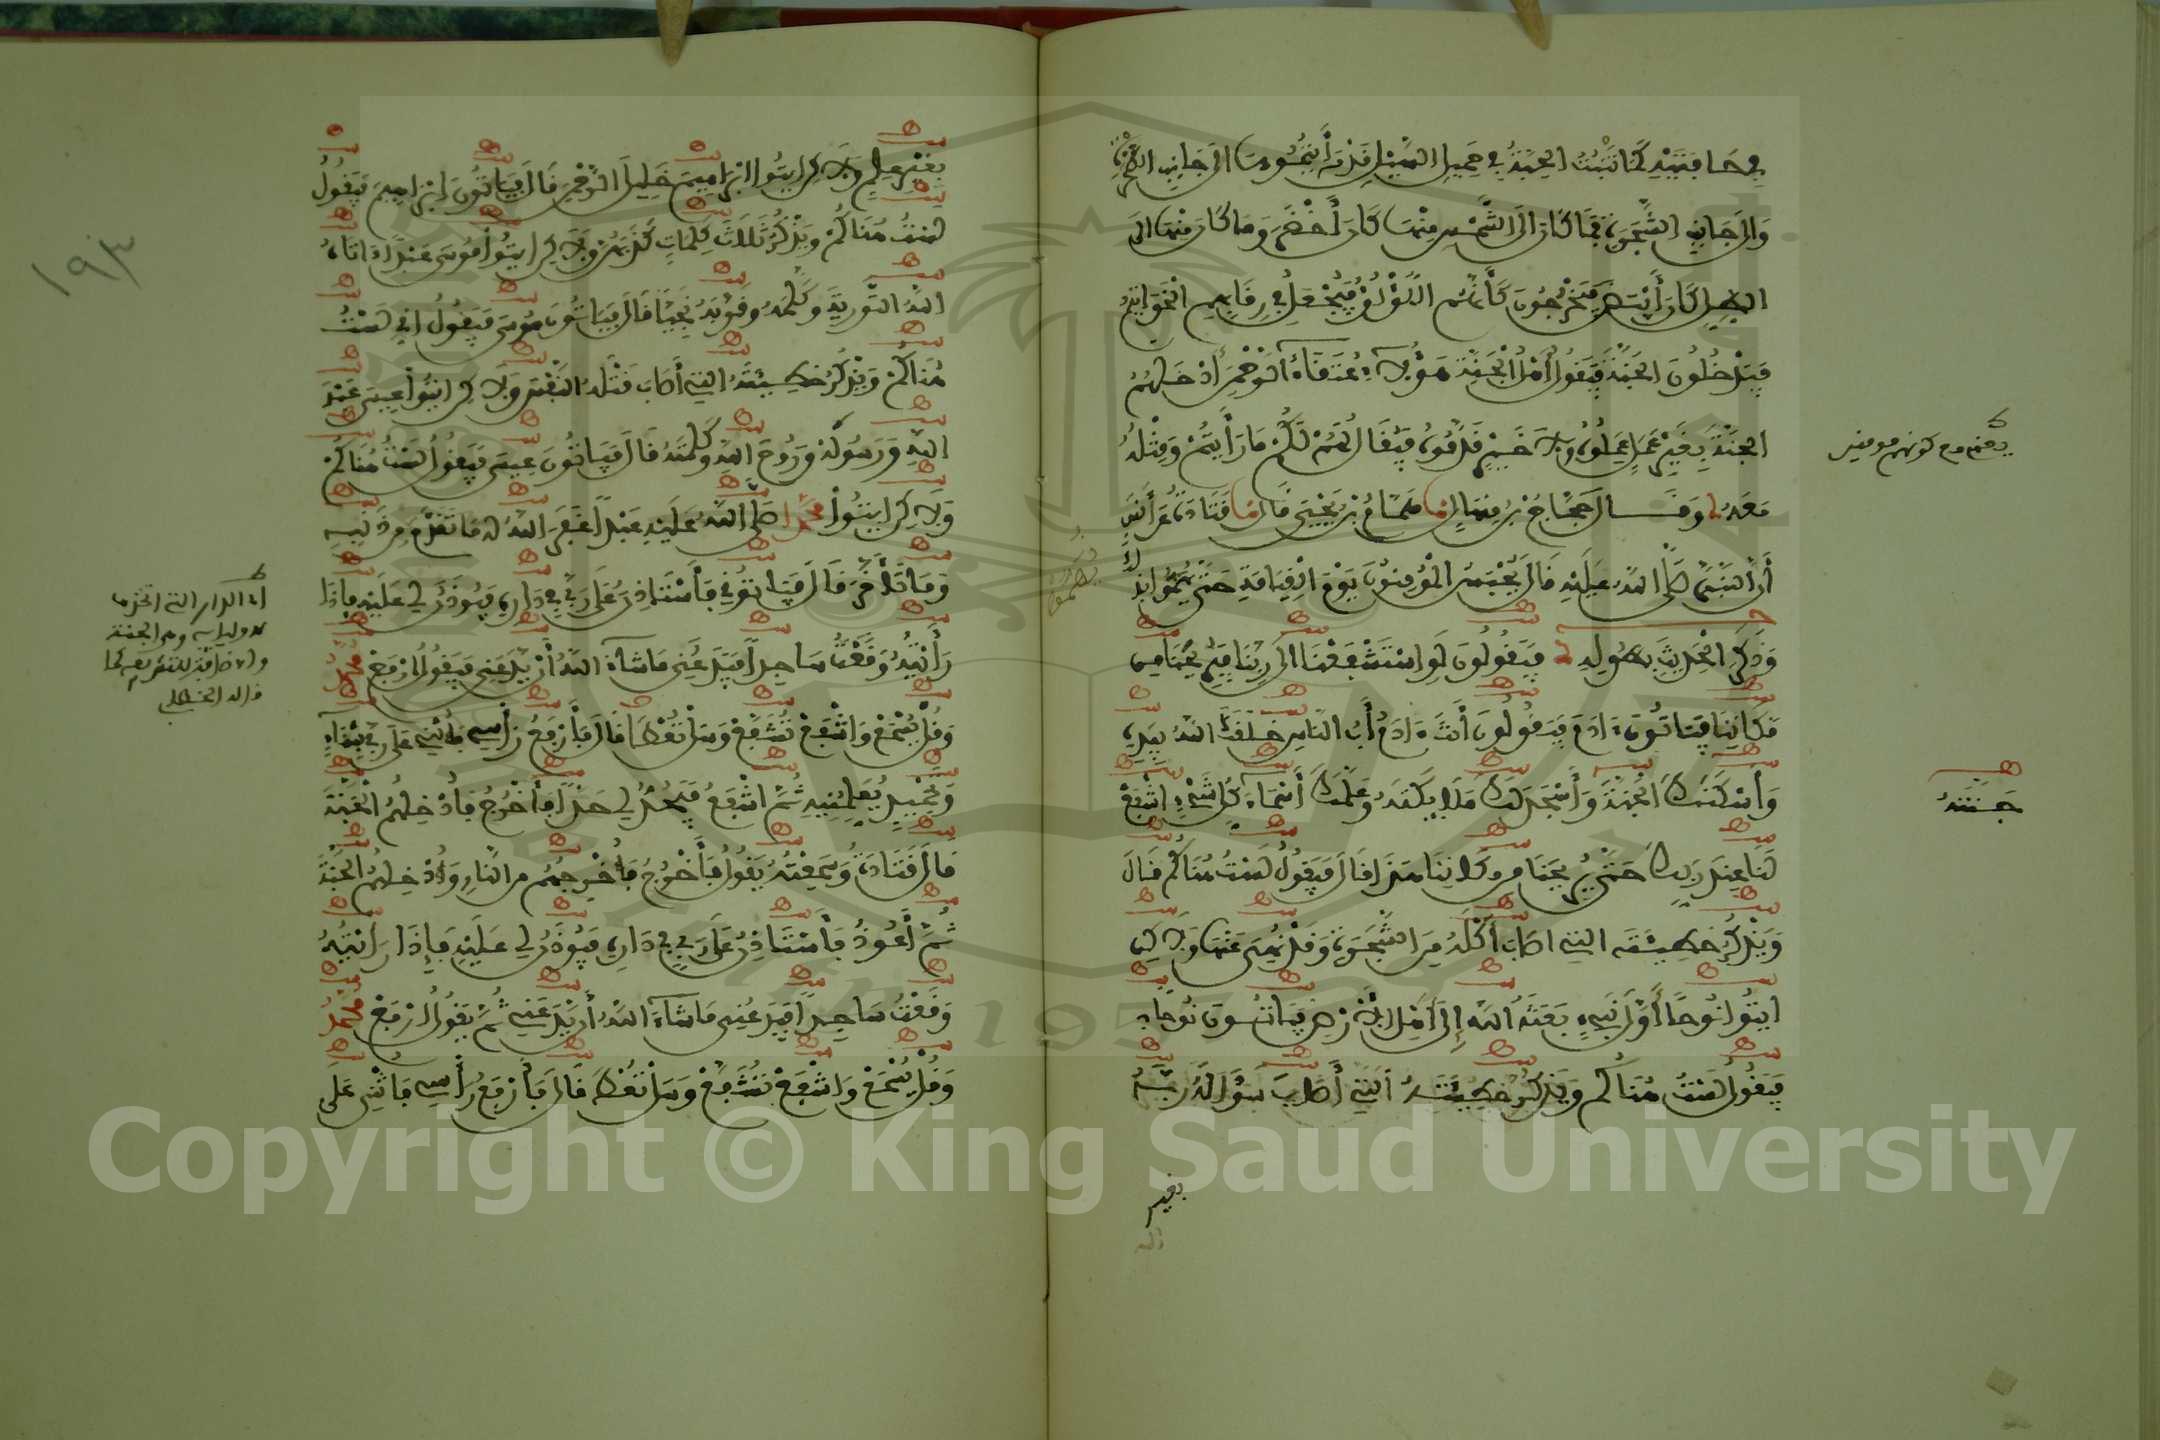 فِي حَافَتَيْهِ كَمَا تَنْبُتُ الْحِبَّةُ فِي حَمِيلِ السَّيْلِ قَدْ رَأَيْتُمُوهَا الَى جَانِبِ الصَّخْرَةِ
وَالَى جَانِبِ الشَّجَرَةِ فَمَا كَانَ الَى الشَّمْسِ مِنْهَا كَانَ أَخْضَرَ وَمَا كَانَ مِنْهَا الَى
الظِلِّ كَانَ أَبْيَضَ فَيَخْرُجُونَ كَأَنَّهُم اللُّؤْلُؤُ فَيُجْعَلُ فِي رِقَابِهِمِ الْخَوَاتِيمُ
فَيَدْخُلُونَ الْجَنَّةَ فَيَقُولُ أَهْلُ الْجَنَّةِ هَؤُلَاءِ عُتَقَاءُ الرَّحْمَنِ أَدْخَلَهُمُ
الْجَنَّةَ بِغَيْرِ عَمَلٍ عَمِلُوهُ وَلَا خَيْرٍ قَدَّمُوهُ فَيُقَالُ لَهُمْ لَكُمْ مَا رَأَيْتُمْ وَمِثْلُهُ
مَعَهُ وَقَالَ حَجَّاجُ بْنُ مِنْهَالٍ نا هَمَّامُ بْنُ يَحْيَى قَالَ نا قَتَادَةُ عَنْ أَنَسٍ
أَنَّ النَّبِيَّ صَلَّى اللهُ عَلَيْهِ قَالَ يُحْبَسُ الْمُؤْمِنُونَ يَوْمَ الْقِيَامَةِ حَتَّى يُهِمُّوا بِذَلِكَ
وَذَكَرَ الْحَدِيثَ بِطُولِهِ فَيَقُولُونَ لَوِ اسْتَشْفَعْنَا الَى رَبِّنَا فَيُرِيحُنَا مِن
مَكَانِنَا فَيَاتُونَ ءَادَمَ فَيَقُولُونَ أَنْتَ ءَادَمُ أَبُ النَّاسِ خَلَقَكَ اللهُ بِيَدِهِ
وَأَسْكَنَكَ الْجَنَّةَ وَأَسْجَدَ لَكَ مَلَايِكَتَهُ وَعَلَّمَكَ أَسْمَاءَ كُلِّ شَيْءٍ اشْفَعْ
لَنَا عِنْدَ رَبِّكَ حَتَّى يُرِيحَنَا مِن مَكَانِنَا هَذَا قَالَ فَيَقُولُ لَسْتُ هُنَاكُمْ قَالَ
وَيَذْكُرُ خَطِيئَتَه التِي اصَابَ أَكْلَهُ مِنَ الشَّجَرَةِ وَقَدْ نُهِيَ عَنْهَا وَلَكِنِ
ايتُوا نُوحًا أَوَّلَ نَبِيءٍ بَعَثَهُ اللهُ إِلَى أَهْلِ الَارْضِ فَيَاتُونَ نُوحًا
فَيَقُولُ لَسْتُ هُنَاكُم وَيَذْكُرُ خَطِيئَتَهُ التِي أَصَابَ سُؤَالَهُ رَبَّهُ
بغير
يعني مع كونهم مومنين
جَنَّتَهُ
بِغَيْرِ عِلْمٍ وَلَكِنِ ايتُوا ابْرَاهِيمَ خَلِيلَ الرَّحْمَنِ قَالَ فَيَاتُونَ ابْرَاهِيمَ فَيَقُولُ
لَسْتُ هُنَاكُمْ وَيَذْكُرُ ثَلَاثَ كَلِمَاتٍ كَذَبَهُنَّ وَلَكِنِ ايتُوا مُوسَى عَبْدًا ءَاتَاهُ
اللهُ التَّوْرِيةَ وَكَلَّمَهُ وَقَرَّبَهُ نَجِيًّا قَالَ فَيَاتُونَ مُوسَى فَيَقُولُ انِّي لَسْتُ
هُنَاكُمْ وَيَذْكُرُ خَطِيئَتَهُ التِي أَصَابَ قَتْلَهُ النَّفْسَ وَلَكِنِ ايتُوا عِيسَى عَبْدَ
اللهِ وَرَسُولَهُ وَرُوحَ اللهِ وَكَلِمَتَهُ قَالَ فَيَاتُونَ عِيسَى فَيَقُولُ لَسْتُ هُنَاكُمْ
وَلَكِنِ ايتُوا مُحَمَّدًا صَلَّى اللهُ عَلَيْهِ عَبْدًا غَفَرَ اللهُ لَهُ مَا تَقَدَّمَ مِن ذَنْبِهِ
وَمَا تَأَخَّرَ قَالَ فَيَاتُونِي فَأَسْتَاذِنُ عَلَى رَبِّي فِي دَارِهِ فَيُوذَنُ لِي عَلَيْهِ فَإِذَا
رَأَيْتُهُ وَقَعْتُ سَاجِدًا فَيَدَعُنِي مَا شَاءَ اللهُ أَنْ يَدَعَنِي فَيَقُولُ ارْفَعْ مُحَمَّدُ
وَقُلْ يُسْمَعْ وَاشْفَعْ تُشَفَّعْ وَسَلْ تُعْطَهُ قَالَ فَأَرْفَعُ رَأْسِي فَأُثْنِي عَلَى رَبِّي بِثَنَاءٍ
وَتَحْمِيدٍ يُعَلِّمُنِيهِ ثُمَّ اشْفَعُ فَيَحُدُّ لِي حَدًّا فَأَخْرُجُ فَأُدْخِلُهُمُ الْجَنَّةَ
قَالَ قَتَادَةُ وَسَمِعْتُهُ يَقُولُ فَأَخْرُجُ فَأُخْرِجُهُم مِن النَّارِ وَأُدْخِلُهُمُ الْجَنَّةَ
ثُمَّ أَعُودُ فَأَسْتَاذِنُ عَلَى رَبِّي فِي دَارِهِ فَيُوذَنُ لِي عَلَيْهِ فَإِذَا رَأَيْتُهُ
وَقَعْتُ سَاجِدًا فَيَدَعُنِي مَا شَاءَ اللهُ أَن يَدَعَنِي ثُمَّ يَقُولُ ارْفَعْ مُحَمَّدُ
وَقُلْ يُسْمَعْ وَاشْفَعْ تُشَفَّعْ وَسَلْ تُعْطَهْ قَالَ فَأَرْفَعُ رَأْسِي فَأُثْنِي عَلَى
اي الدار التي اتخذها
لاوليايه وهي الجنة
والاضافة للتشريف كما
قاله الخطابي
١٩٣
Copyright © King Saud University
195